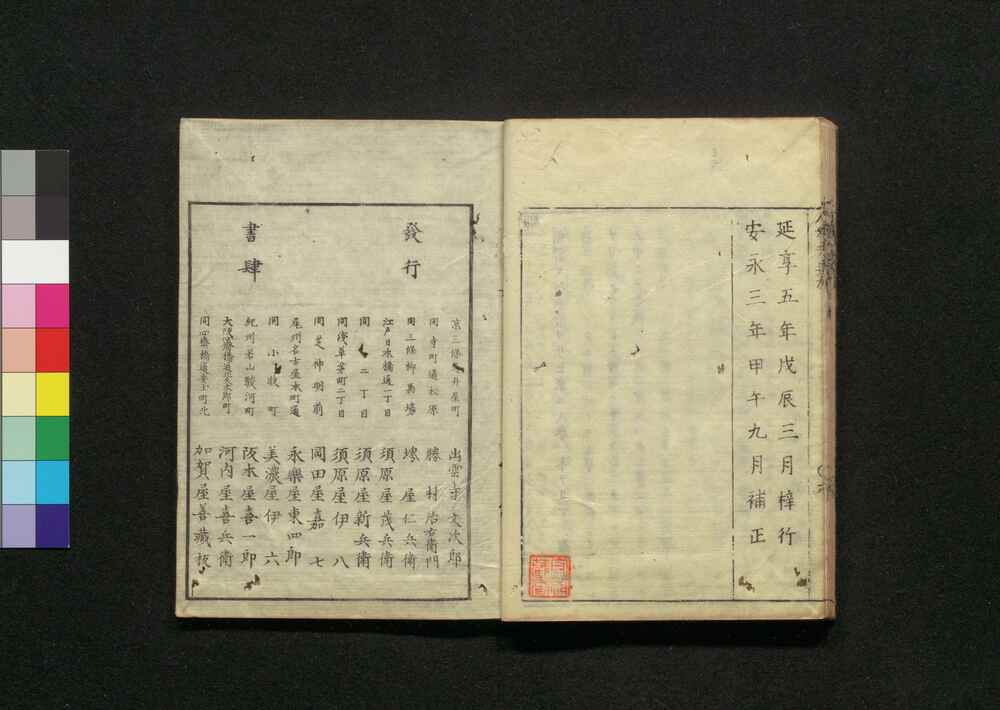 延享五年戊辰三月梓行
安永三年甲午九月補正
發行
書肆
京三條 井屋町 出雲寺文次郎
同寺町通松原 勝村治右衛門
同三條柳馬場 堺屋仁兵衛
江戸日本橋通一丁目 須原屋茂兵衛
同 二丁目 須原屋新兵衛
同浅草茅町二丁目 須原屋伊八
同芝神明前 岡田屋嘉七
尾州名古屋本町通 永樂屋東四郎
同 小牧町 美濃屋伊六
紀州若山駿河町 阪本屋喜一郎
大阪心齋橋通北久太郎町 河内屋喜兵衛
同心齋橋通安土町北 加賀屋善藏板